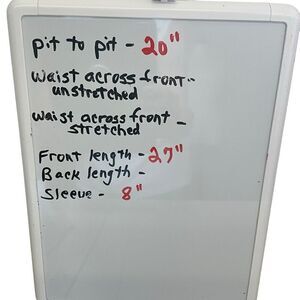 pit to pit - 20"
waist across front -
unstretched
waist across front -
stretched
Front length - 27"
Back length -
Sleeve - 8"